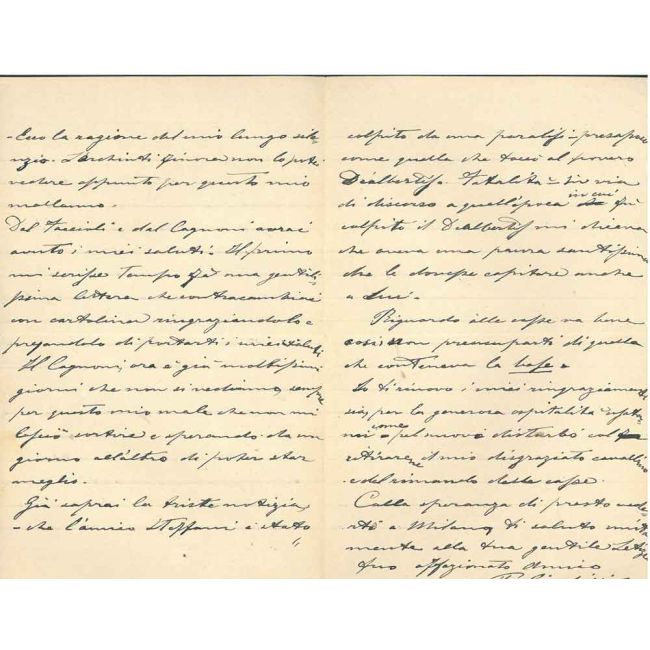 - Ecco la ragione del mio lungo silen-
zio. L'Archinti finora non lo potei
vedere appunto per questo mio
malanno.
Del Faccioli e dal Cagnoni avrai
avuto i miei saluti. Il primo
mi scrisse tempo fà una gentilis-
sima lettera che contracambiai
con cartolina ringraziandolo e
pregandolo di portarti i miei saluti
Il Cagnoni, ora è già moltissimi
giorni che non ci vediamo, sempre
per questo mio male che non mi
lasciò sortire e sperando da un
giorno all'altro di poter star
meglio.
Già saprai la triste notizia,
- che l'amico Steffani è stato
colpito da una paralisi - pressapoco
come quella che toccò al povero
Dealbertis. Fatalità - in via
di discorso a quell'epoca in cui fù
colpito il Dealbertis mi diceva
che aveva una paura santissima
che le dovesse capitare anche
a Lui.
Riguardo alle casse va bene
così non preoccuparti di quella
che conteneva la base.
Io ti rinnovo i miei ringraziamenti
sia, per la generosa ospitalità
come pel nuovo disturbo col
ritirare il mio disgraziato cavallino
e del rimando della casse.
Colla speranza di presto veder-
ti a Milano, ti saluto
mente alla tua gentile
tuo affezionato Amico